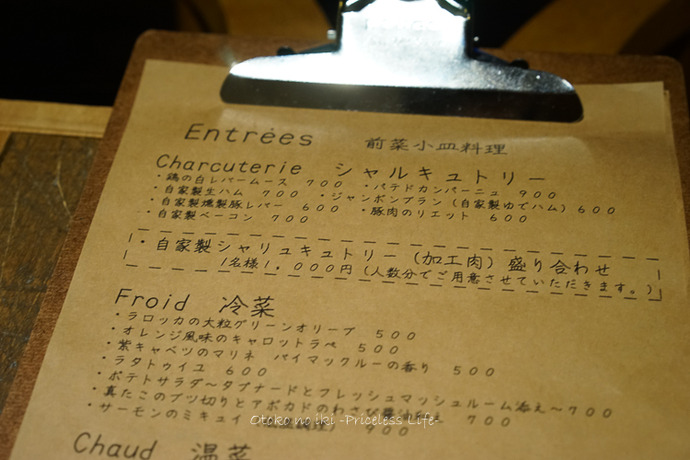 Entrées 前菜小皿料理
Charcuterie シャルキュトリー
・鶏の白レバームース 700 ・パテドカンパーニュ 900
・自家製生ハム 700 ・ジャンボンブラン(自家製ゆでハム) 600
・自家製燻製豚レバー 600 ・豚肉のリエット 600
・自家製ベーコン 700
・自家製シャリュキュトリー(加工肉)盛り合わせ
1名様1.000円(人数分でご用意させていただきます。)
Froid 冷菜
・ラロッカの大粒グリーンオリーブ 500
・オレンジ風味のキャロットラペ 500
・紫キャベツのマリネ バイマックルーの香り 500
・ラタトゥイユ 600
・ポテトサラダ~タプナードとフレッシュマッシュルーム添え~700
・真たこのブツ切りとアボカドのわさび醤油和え 700
・サーモンのミキュイ 900
Otoko no iki -Priceless Life-
Chaud 温菜